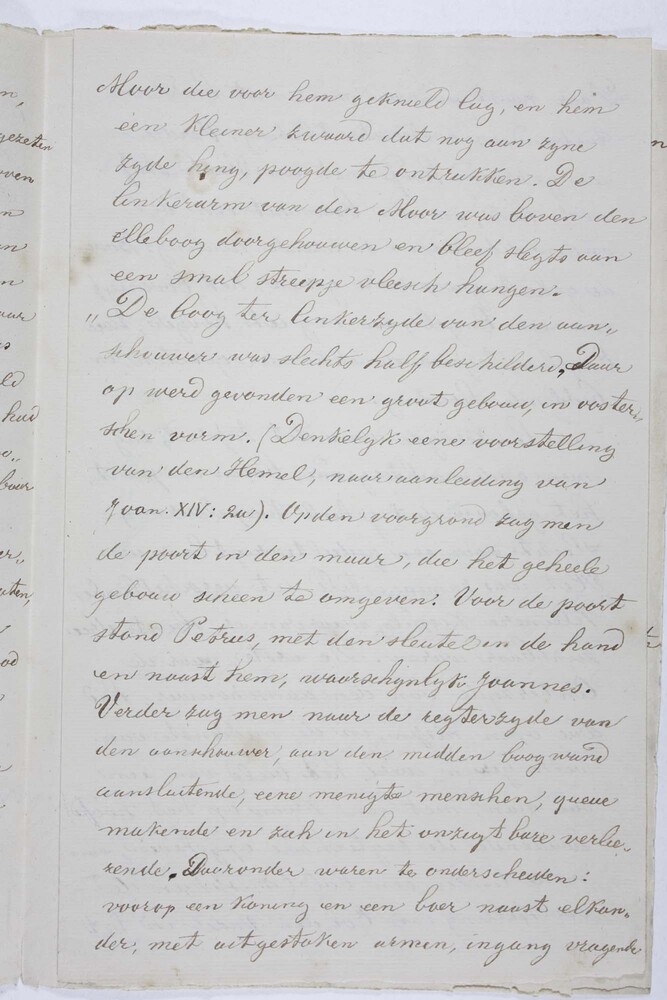 Moor die voor hem geknield lag, en hem
een kleiner zwaard dat nog aan zyne
zyde hing, poogde te ontrukken. De
linkerarm van den Moor was boven den
elleboog doorgehouwen en bleef slegts aan
een smal streepje vleesch hangen.
„De boog ter linkerzyde van den aan„
schouwer was slechts half beschilderd. Daar
op werd gevonden een groot gebouw, in ooster„
schen vorm. (Denkelyk eene voorstelling
van den Hemel, naar aanleiding van
Joan. XIV: 2a). Op den voorgrond zag men
de poort in den muur, die het geheele
gebouw scheen te omgeven. Voor de poort
stond Petrus, met den sleutel in de hand
en naast hem, waarschynlyk Joannes.
Verder zag men naar de regterzyde van
den aanschouwer, aan den midden boogwand
aansluitende, eene menigte menschen, queue
makende en zich in het onzigtbare verlie„
zende. Daaronder waren te onderscheiden:
voorop een koning en een boer naast elkan„
der, met uitgestoken armen, ingang vragende